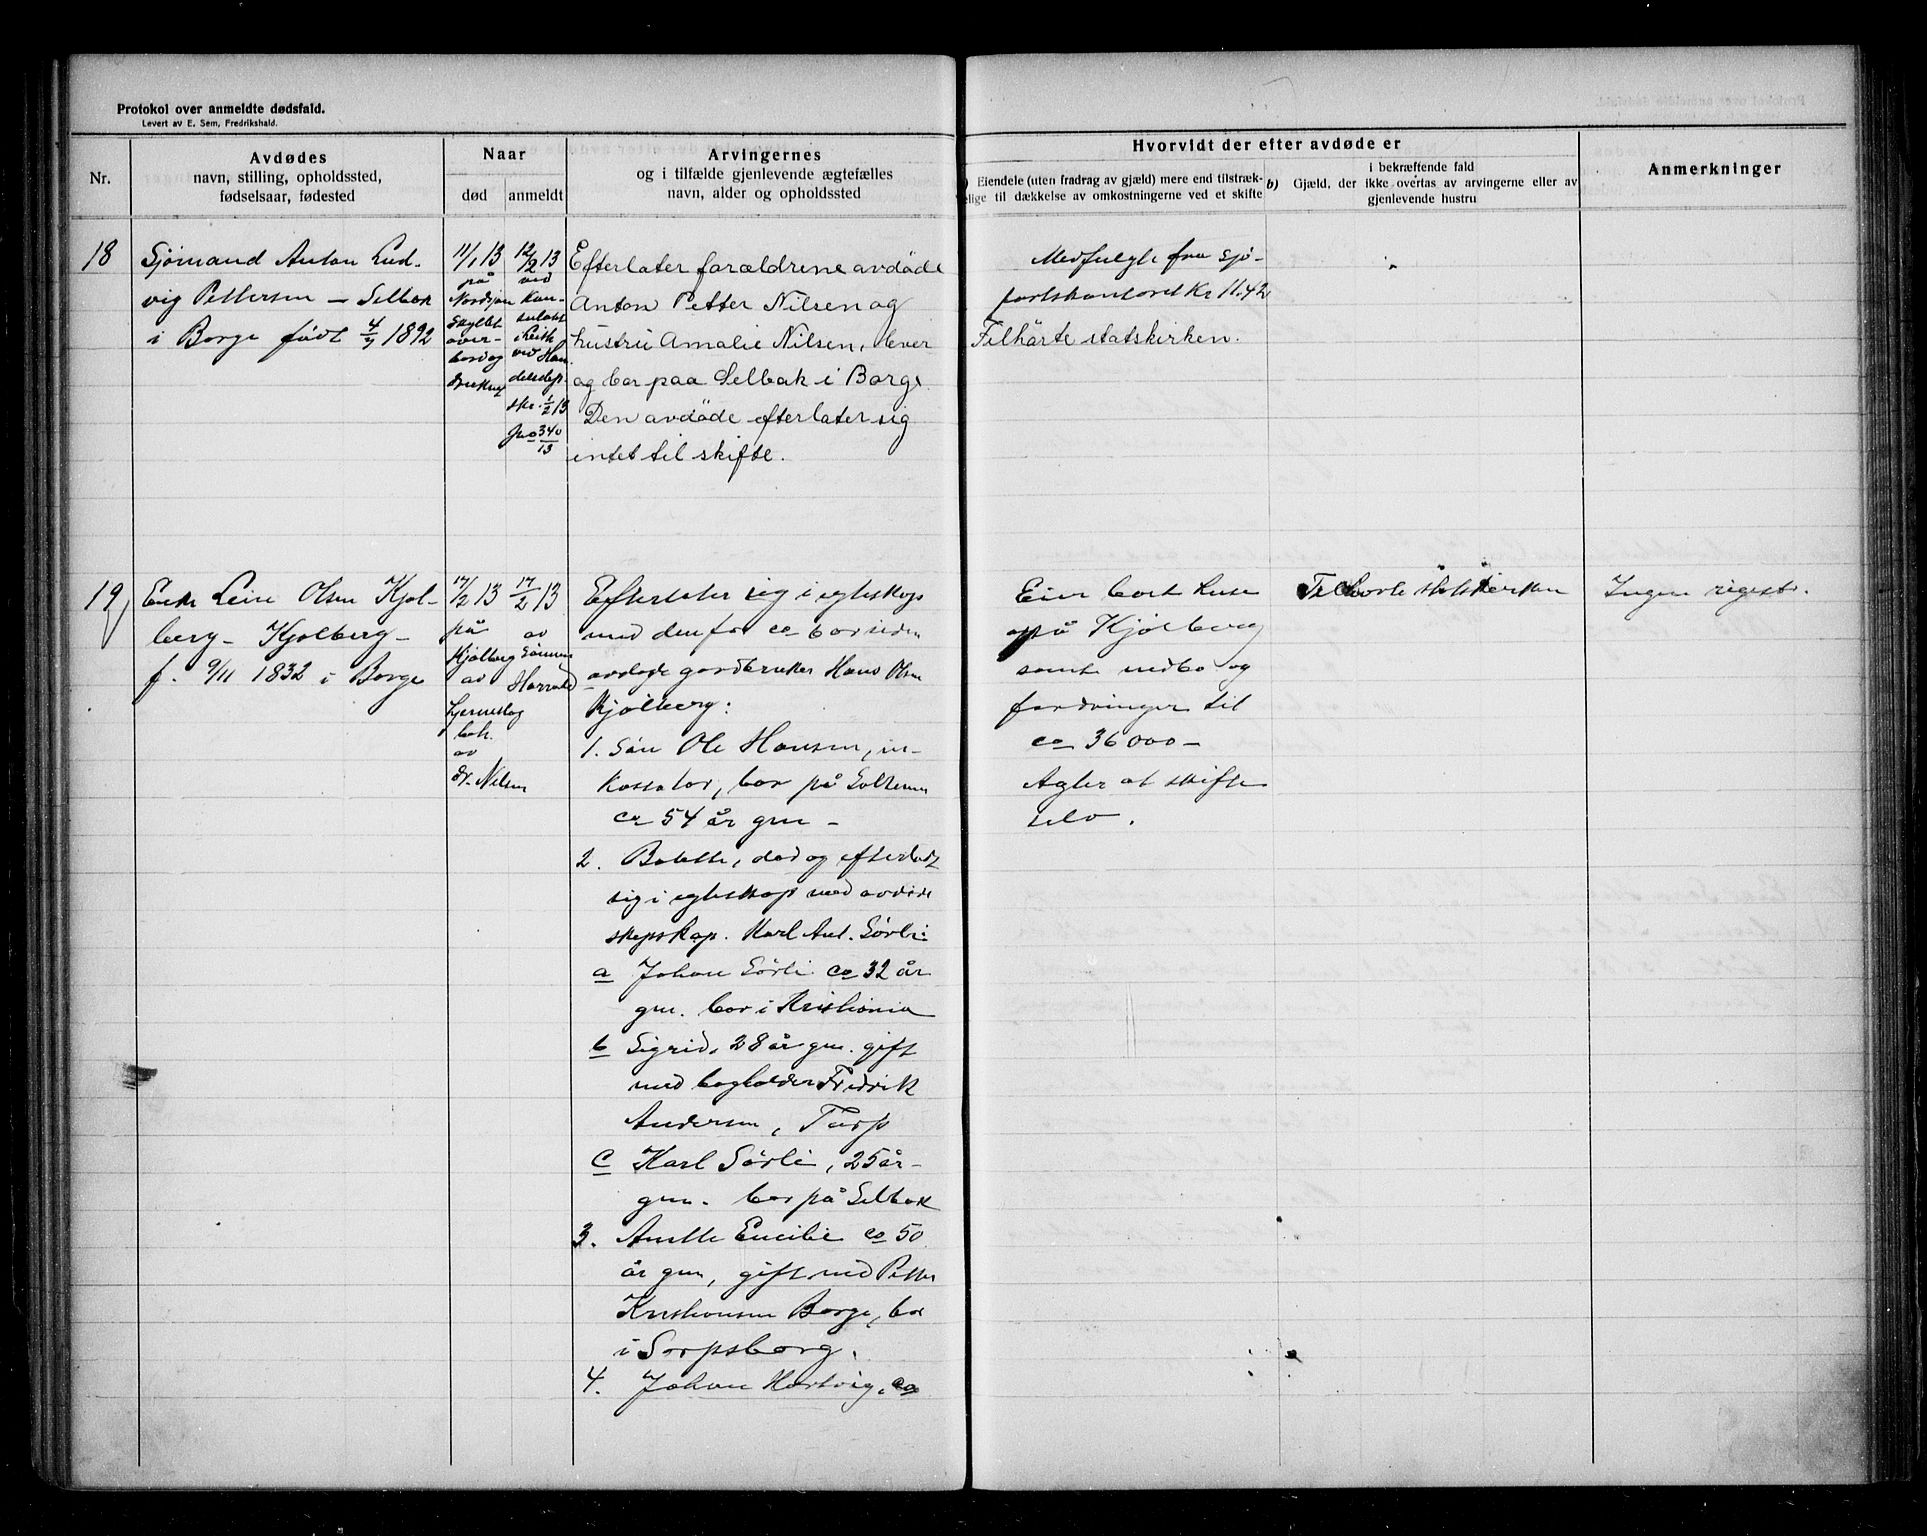 Protokol over anmeldte dødsfald.
Levert av E. Sem, Fredrikshald.
Nr.
Avdødes
navn, stilling, opholdssted,
fødselsaar, fødested
Naar
død
anmeldt
Arvingernes
og i tilfælde gjenlevende ægtefælles
navn, alder og opholdssted
Hvorvidt der efter avdøde er
Eiendele (uten fradrag av gjæld) mere end tilstræk-
elige til dækkelse av omkostningerne ved et skifte
b) Gjæld, der i bekræftende fald
ikke overtas av arvingerne eller av
gjenlevende hustru
Anmerkninger
18
Sjømand Anton Lud-
vig Pettersen — Selbak
i Borge født 4/7 1892
11/1 13
på
Nordsjøn
skyllet
over-
bord og
druknet
12/2 13
ved
Kon-
sulatet
i Leith
ved Han-
delsdep.
skr. 1/2 13
jno 340/13
Efterlater forældrene avdøde
Anton Petter Nilsen og
hustru Amalie Nilsen, lever
og bor paa Selbak i Borge
Den avdøde efterlater sig
intet til skifte.
Medfulgte fra sjø-
fartskontoret Kr 11.42
Tilhørte statskirken.
19
Enke Leine Olsen Kjøl-
berg - Kjølberg -
f. 9/11 1832 i Borge
17/2 13
på
Kjølberg
av
hjerneslag
beh.
av
dr. Nilsen
17/2 13
av
sønnen
Harald
Efterlater sig i egteskap
med den for ca
avdøde gardbruker Hans Olsen
Kjølberg:
1. Søn Ole Hansen, in-
kassator, bor på
ca 54 år gm -
2. Bolette, død og efterladt
sig i egteskap med avdøde
skipskap. Karl Ant. Sørli:
a Johan Sørli ca 32 år
gm. bor i Kristiania
b Sigrid, 28 år gm. gift
med bogholder Fredrik
Andersen, Torp
c Karl Sørli, 25 år
gm. bor på Selbak
3. Anette Emilie ca 50
år gm, gift med Petter
Kristiansen Borge, bor
i Sarpsborg.
4. Johan Hartvig, ca
Eier bort huse
på Kjølberg
samt indbo og
fordringer til
ca 36000 -
Agter at skifte
selv.
Tilhørte statskirken
Ingen registr.